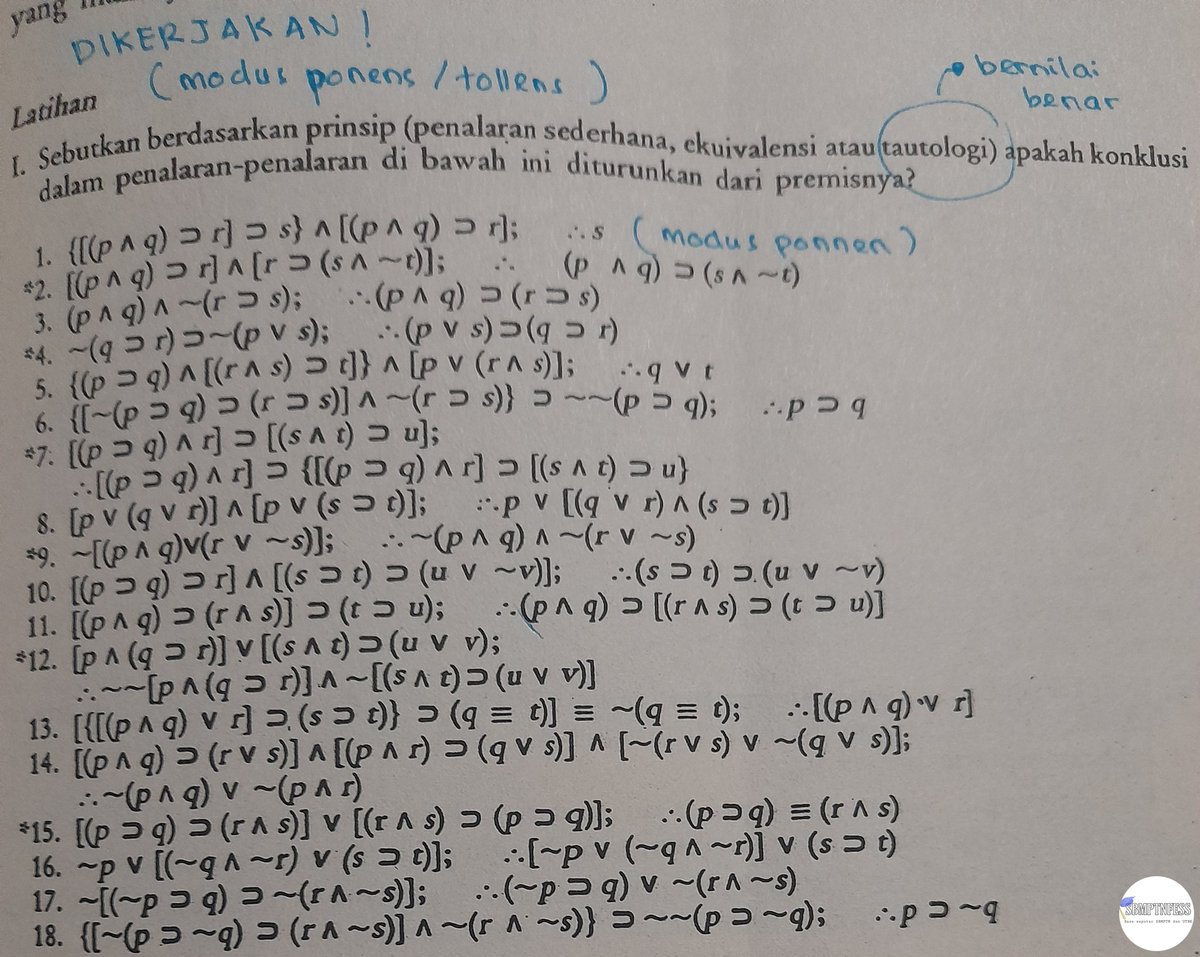 yang
DIKERJAKAN!
(modus ponens / tollens)
bernilai
benar
Latihan
I. Sebutkan berdasarkan prinsip (penalaran sederhana, ekuivalensi atau tautologi) apakah konklusi
dalam penalaran-penalaran di bawah ini diturunkan dari premisnya?
1. {[(p ∧ q) ⊃ r] ⊃ s} ∧ [(p ∧ q) ⊃ r]; ∴s (modus ponnen)
*2. [(p ∧ q) ⊃ r] ∧ [r ⊃ (s ∧ ~t)]; ∴ (p ∧ q) ⊃ (s ∧ ~t)
3. (p ∧ q) ∧ ~(r ⊃ s); ∴(p ∧ q) ⊃ (r ⊃ s)
*4. ~(q ⊃ r) ⊃ ~(p ∨ s); ∴(p ∨ s) ⊃ (q ⊃ r)
5. {(p ⊃ q) ∧ [(r ∧ s) ⊃ t]} ∧ [p ∨ (r ∧ s)]; ∴q ∨ t
6. {[~(p ⊃ q) ⊃ (r ⊃ s)] ∧ ~(r ⊃ s)} ⊃ ~~(p ⊃ q); ∴p ⊃ q
*7. [(p ⊃ q) ∧ r] ⊃ [(s ∧ t) ⊃ u];
∴[(p ⊃ q) ∧ r] ⊃ {[(p ⊃ q) ∧ r] ⊃ [(s ∧ t) ⊃ u}
8. [p ∨ (q ∨ r)] ∧ [p ∨ (s ⊃ t)]; ∴p ∨ [(q ∨ r) ∧ (s ⊃ t)]
*9. ~[(p ∧ q)∨(r ∨ ~s)]; ∴~(p ∧ q) ∧ ~(r ∨ ~s)
10. [(p ⊃ q) ⊃ r] ∧ [(s ⊃ t) ⊃ (u ∨ ~v)]; ∴(s ⊃ t) ⊃ (u ∨ ~v)
11. [(p ∧ q) ⊃ (r ∧ s)] ⊃ (t ⊃ u); ∴(p ∧ q) ⊃ [(r ∧ s) ⊃ (t ⊃ u)]
*12. [p ∧ (q ⊃ r)] ∨ [(s ∧ t) ⊃ (u ∨ v);
∴~~[p ∧ (q ⊃ r)] ∧ ~[(s ∧ t) ⊃ (u ∨ v)]
13. [{[(p ∧ q) ∨ r] ⊃ (s ⊃ t)} ⊃ (q ≡ t)] ≡ ~(q ≡ t); ∴[(p ∧ q) ∨ r]
14. [(p ∧ q) ⊃ (r ∨ s)] ∧ [(p ∧ r) ⊃ (q ∨ s)] ∧ [~(r ∨ s) ∨ ~(q ∨ s)];
∴~(p ∧ q) ∨ ~(p ∧ r)
*15. [(p ⊃ q) ⊃ (r ∧ s)] ∨ [(r ∧ s) ⊃ (p ⊃ q)]; ∴(p ⊃ q) ≡ (r ∧ s)
16. ~p ∨ [(~q ∧ ~r) ∨ (s ⊃ t)]; ∴[~p ∨ (~q ∧ ~r)] ∨ (s ⊃ t)
17. ~[(~p ⊃ q) ⊃ ~(r ∧ ~s)]; ∴(~p ⊃ q) ∨ ~(r ∧ ~s)
18. {[~(p ⊃ ~q) ⊃ (r ∧ ~s)] ∧ ~(r ∧ ~s)} ⊃ ~~(p ⊃ ~q); ∴p ⊃ ~q
SBMPTNFESS